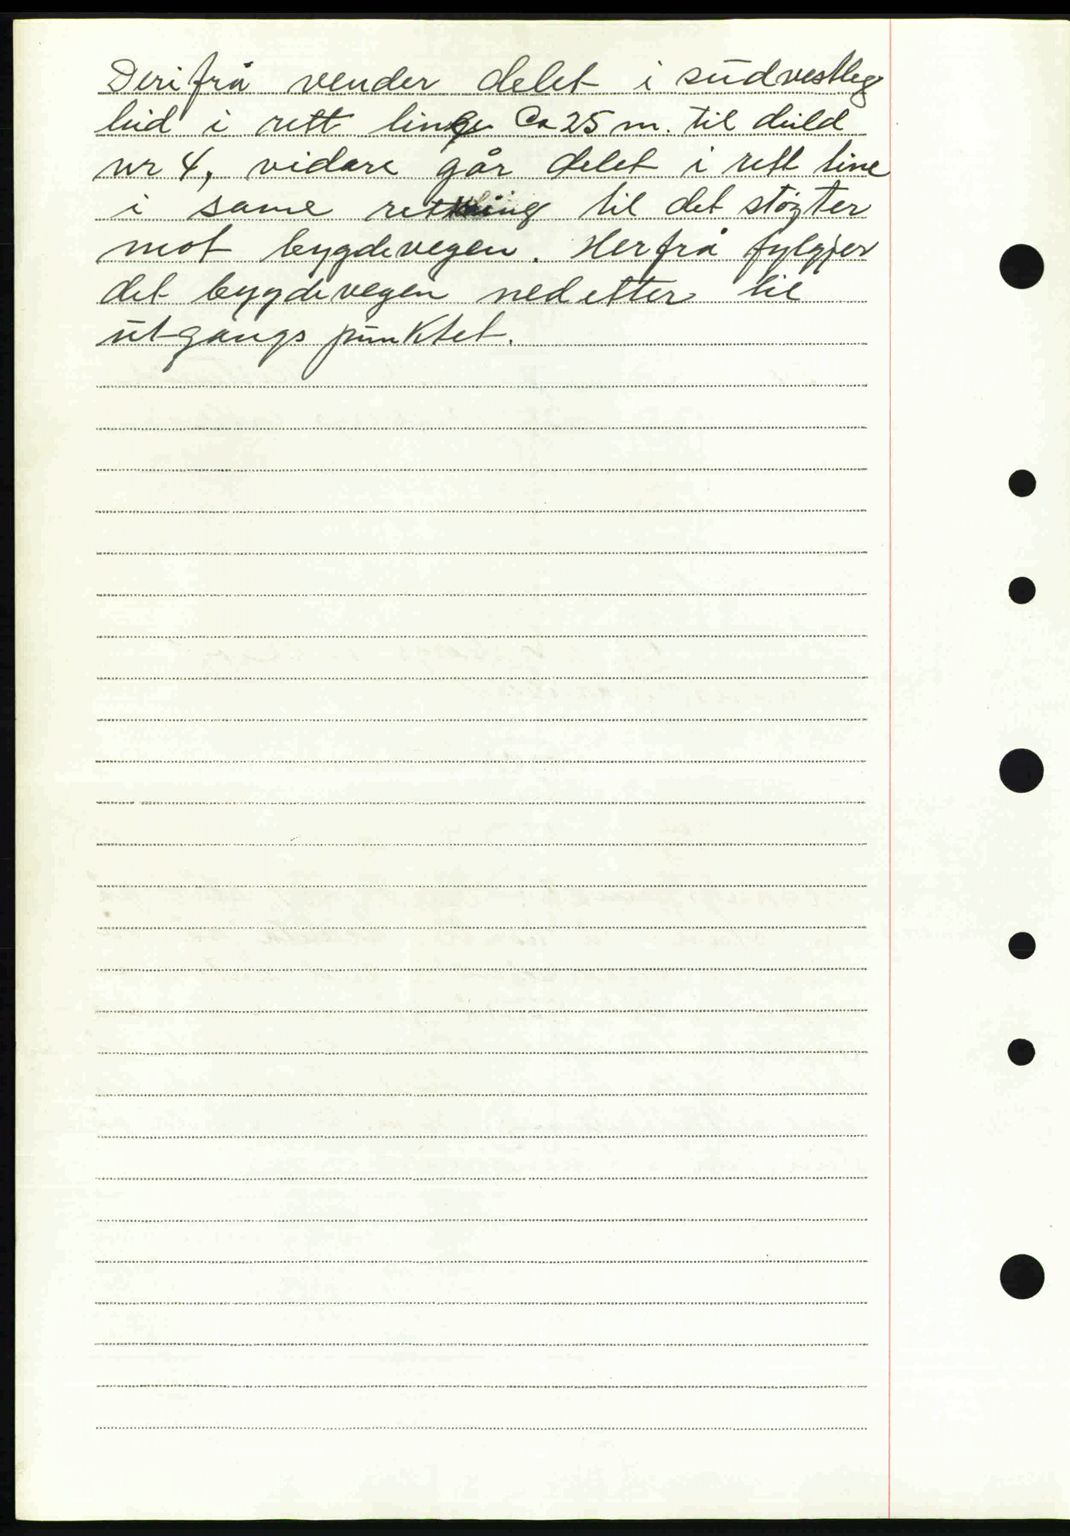 Derifrå vender delet i südvestleg
leid i rett line Ca 25 m. til deild
nr 4, vidare går delet i rett line
i same retning til det støyter
mot bygdevegen. Herfrå fylgjer
det bygdevegen nedetter til
ütgangspünktet.